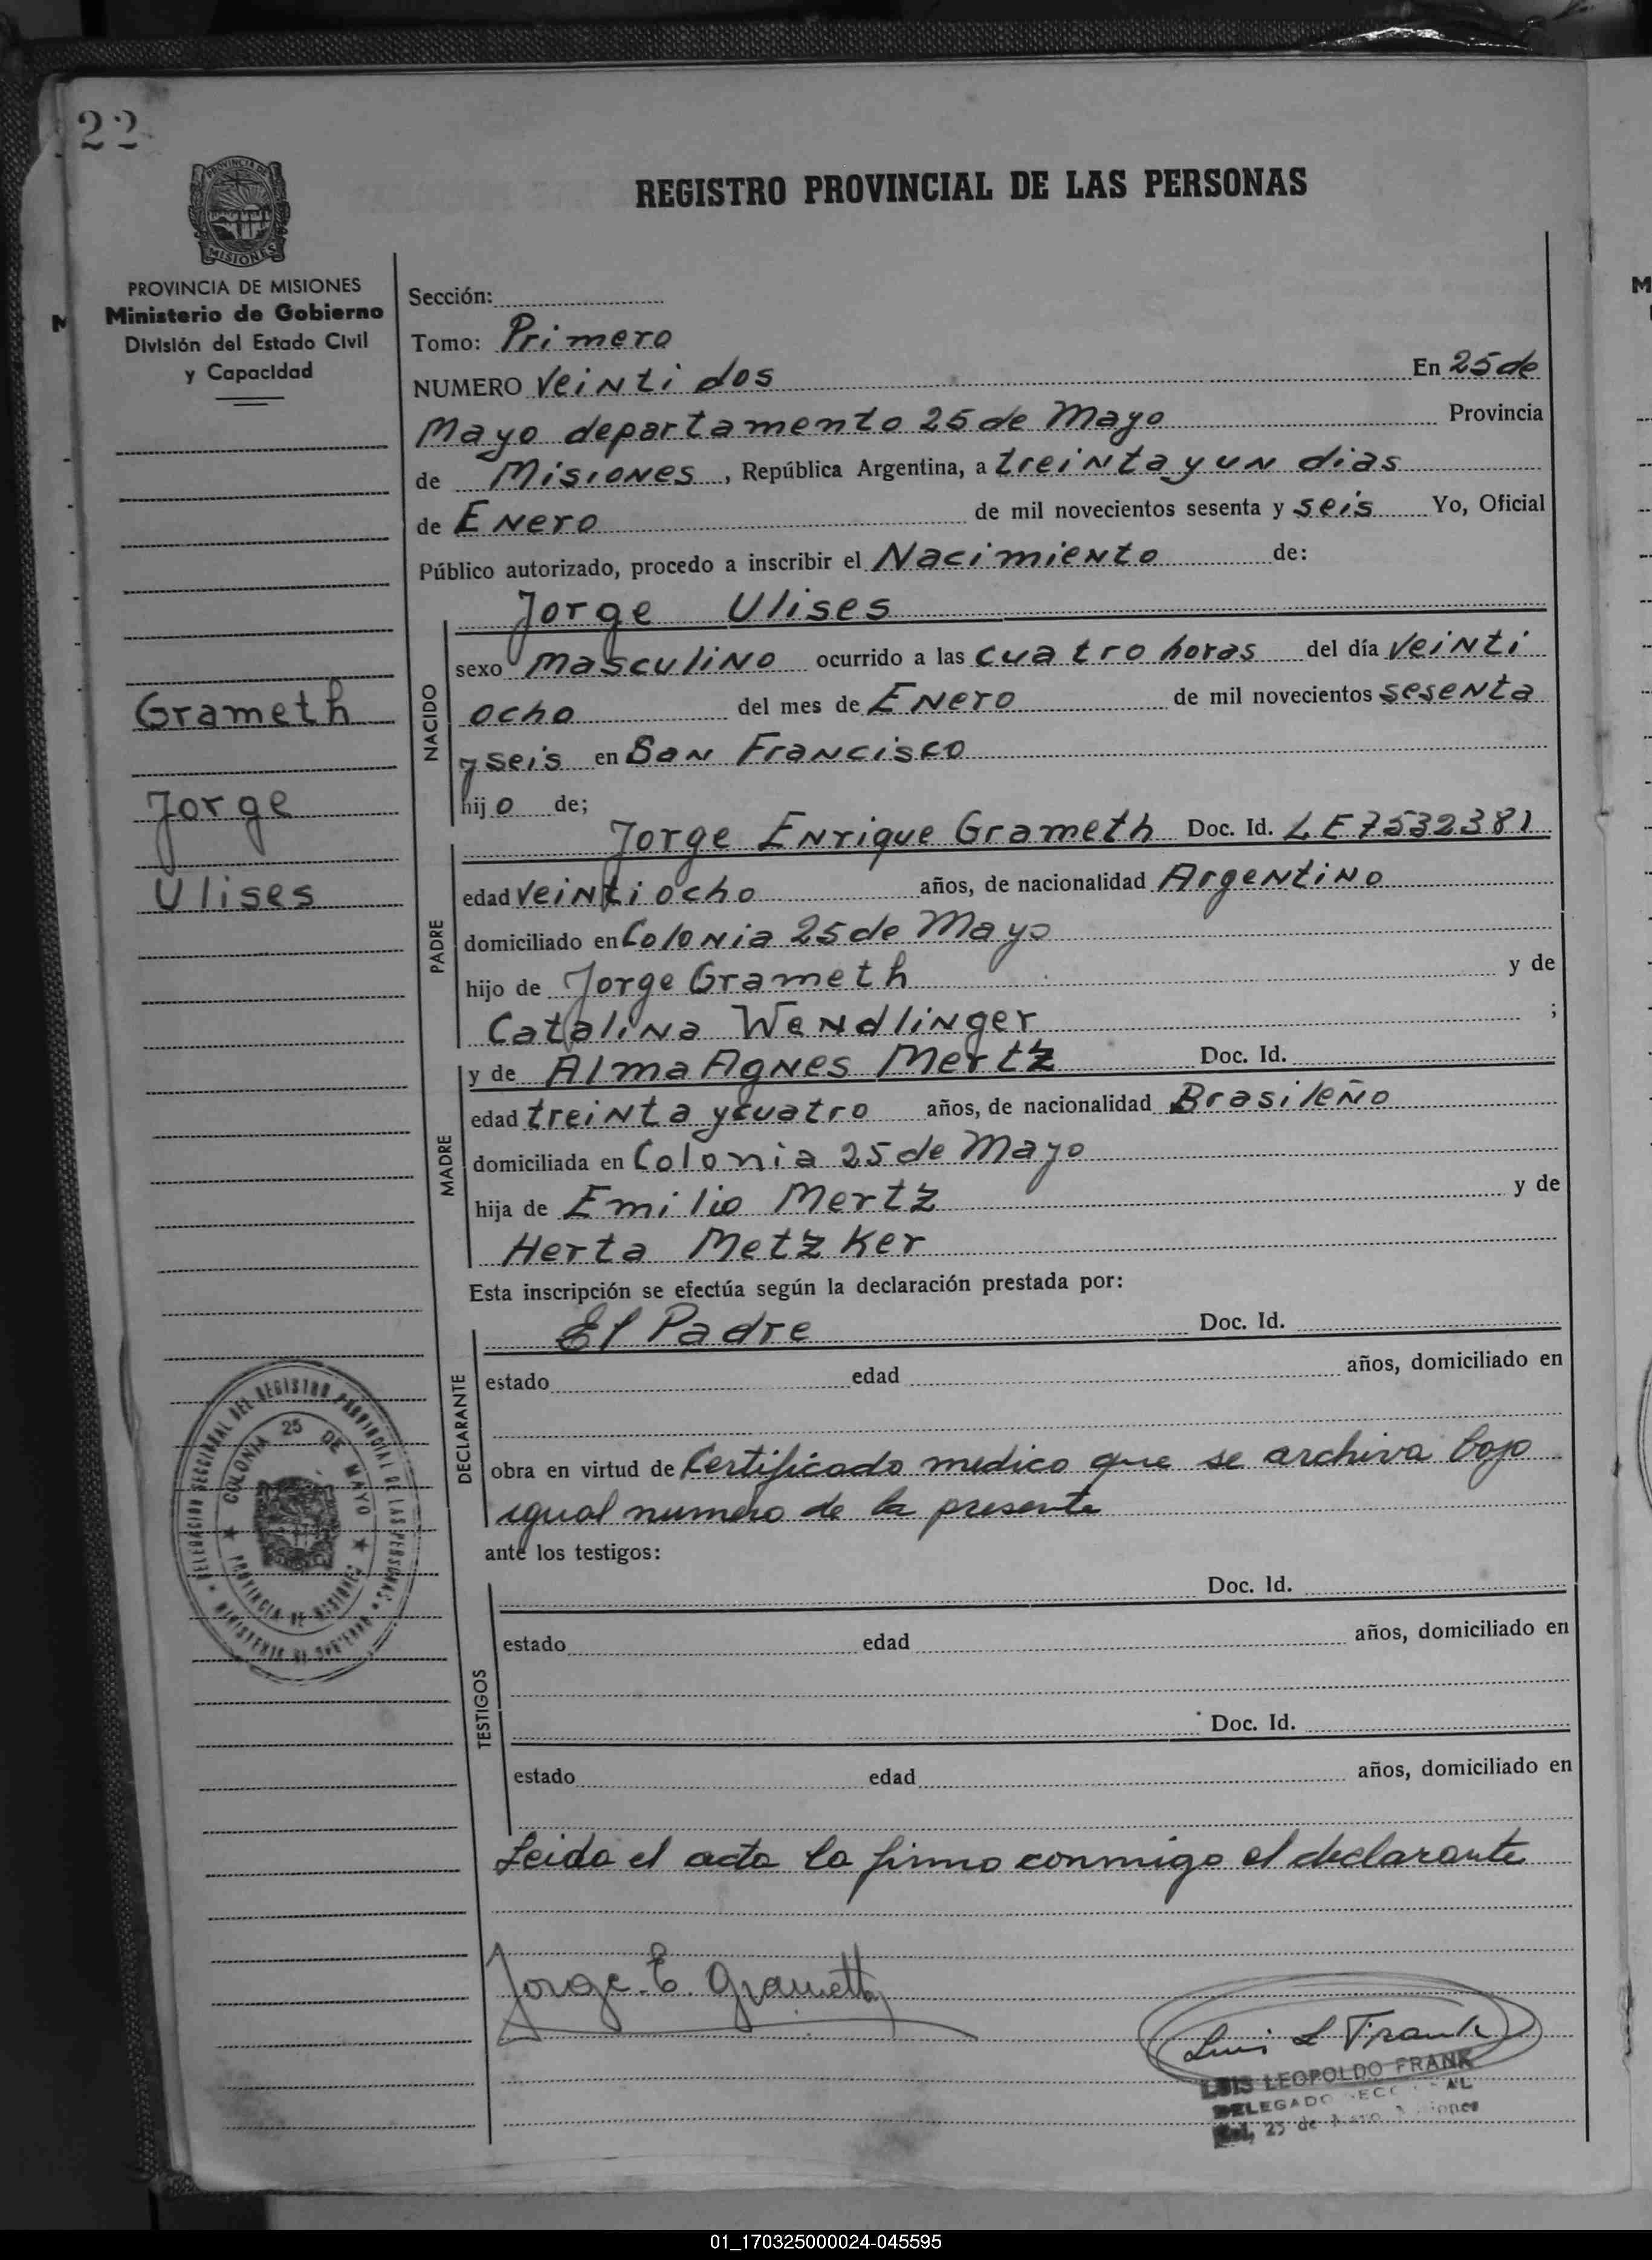 22
PROVINCIA DE
MISIONES
PROVINCIA DE MISIONES
Ministerio de Gobierno
División del Estado Civil
y Capacidad
Grameth
Jorge
Ulises
REGISTRO PROVINCIAL DE LAS PERSONAS
Sección:
Tomo: Primero
NUMERO Veinti dos En 25 de
Mayo departamento 25 de Mayo Provincia
de Misiones, República Argentina, a treinta y un dias
de Enero de mil novecientos sesenta y seis Yo, Oficial
Público autorizado, procedo a inscribir el Nacimiento de:
Jorge Ulises
NACIDO
sexo masculino ocurrido a las cuatro horas del día veinti
ocho del mes de Enero de mil novecientos sesenta
y seis en San Francisco
hijo de;
PADRE
Jorge Enrique Grameth Doc. Id. LE 7532381
edad veinti ocho años, de nacionalidad Argentino
domiciliado en Colonia 25 de Mayo
hijo de Jorge Grameth y de
Catalina Wendlinger ;
MADRE
y de Alma Agnes Mertz Doc. Id.
edad treinta y cuatro años, de nacionalidad Brasileño
domiciliada en Colonia 25 de Mayo
hija de Emilio Mertz y de
Herta Metzker
Esta inscripción se efectúa según la declaración prestada por:
DECLARANTE
El Padre Doc. Id.
estado edad años, domiciliado en
obra en virtud de Certificado medico que se archiva bajo
igual numero de la presente
ante los testigos:
TESTIGOS
Doc. Id.
estado edad años, domiciliado en
Doc. Id.
estado edad años, domiciliado en
Leida el acta la firmo conmigo el declarante
DELEGACION SECCIONAL DEL REGISTRO PROVINCIAL DE LAS PERSONAS
MINISTERIO DE GOBIERNO
COLONIA 25 DE MAYO
PROVINCIA DE MISIONES
Jorge E. Grameth
Luis L Frank
LUIS LEOPOLDO FRANK
DELEGADO
Col. 25 de Mayo
01_170325000024-045595